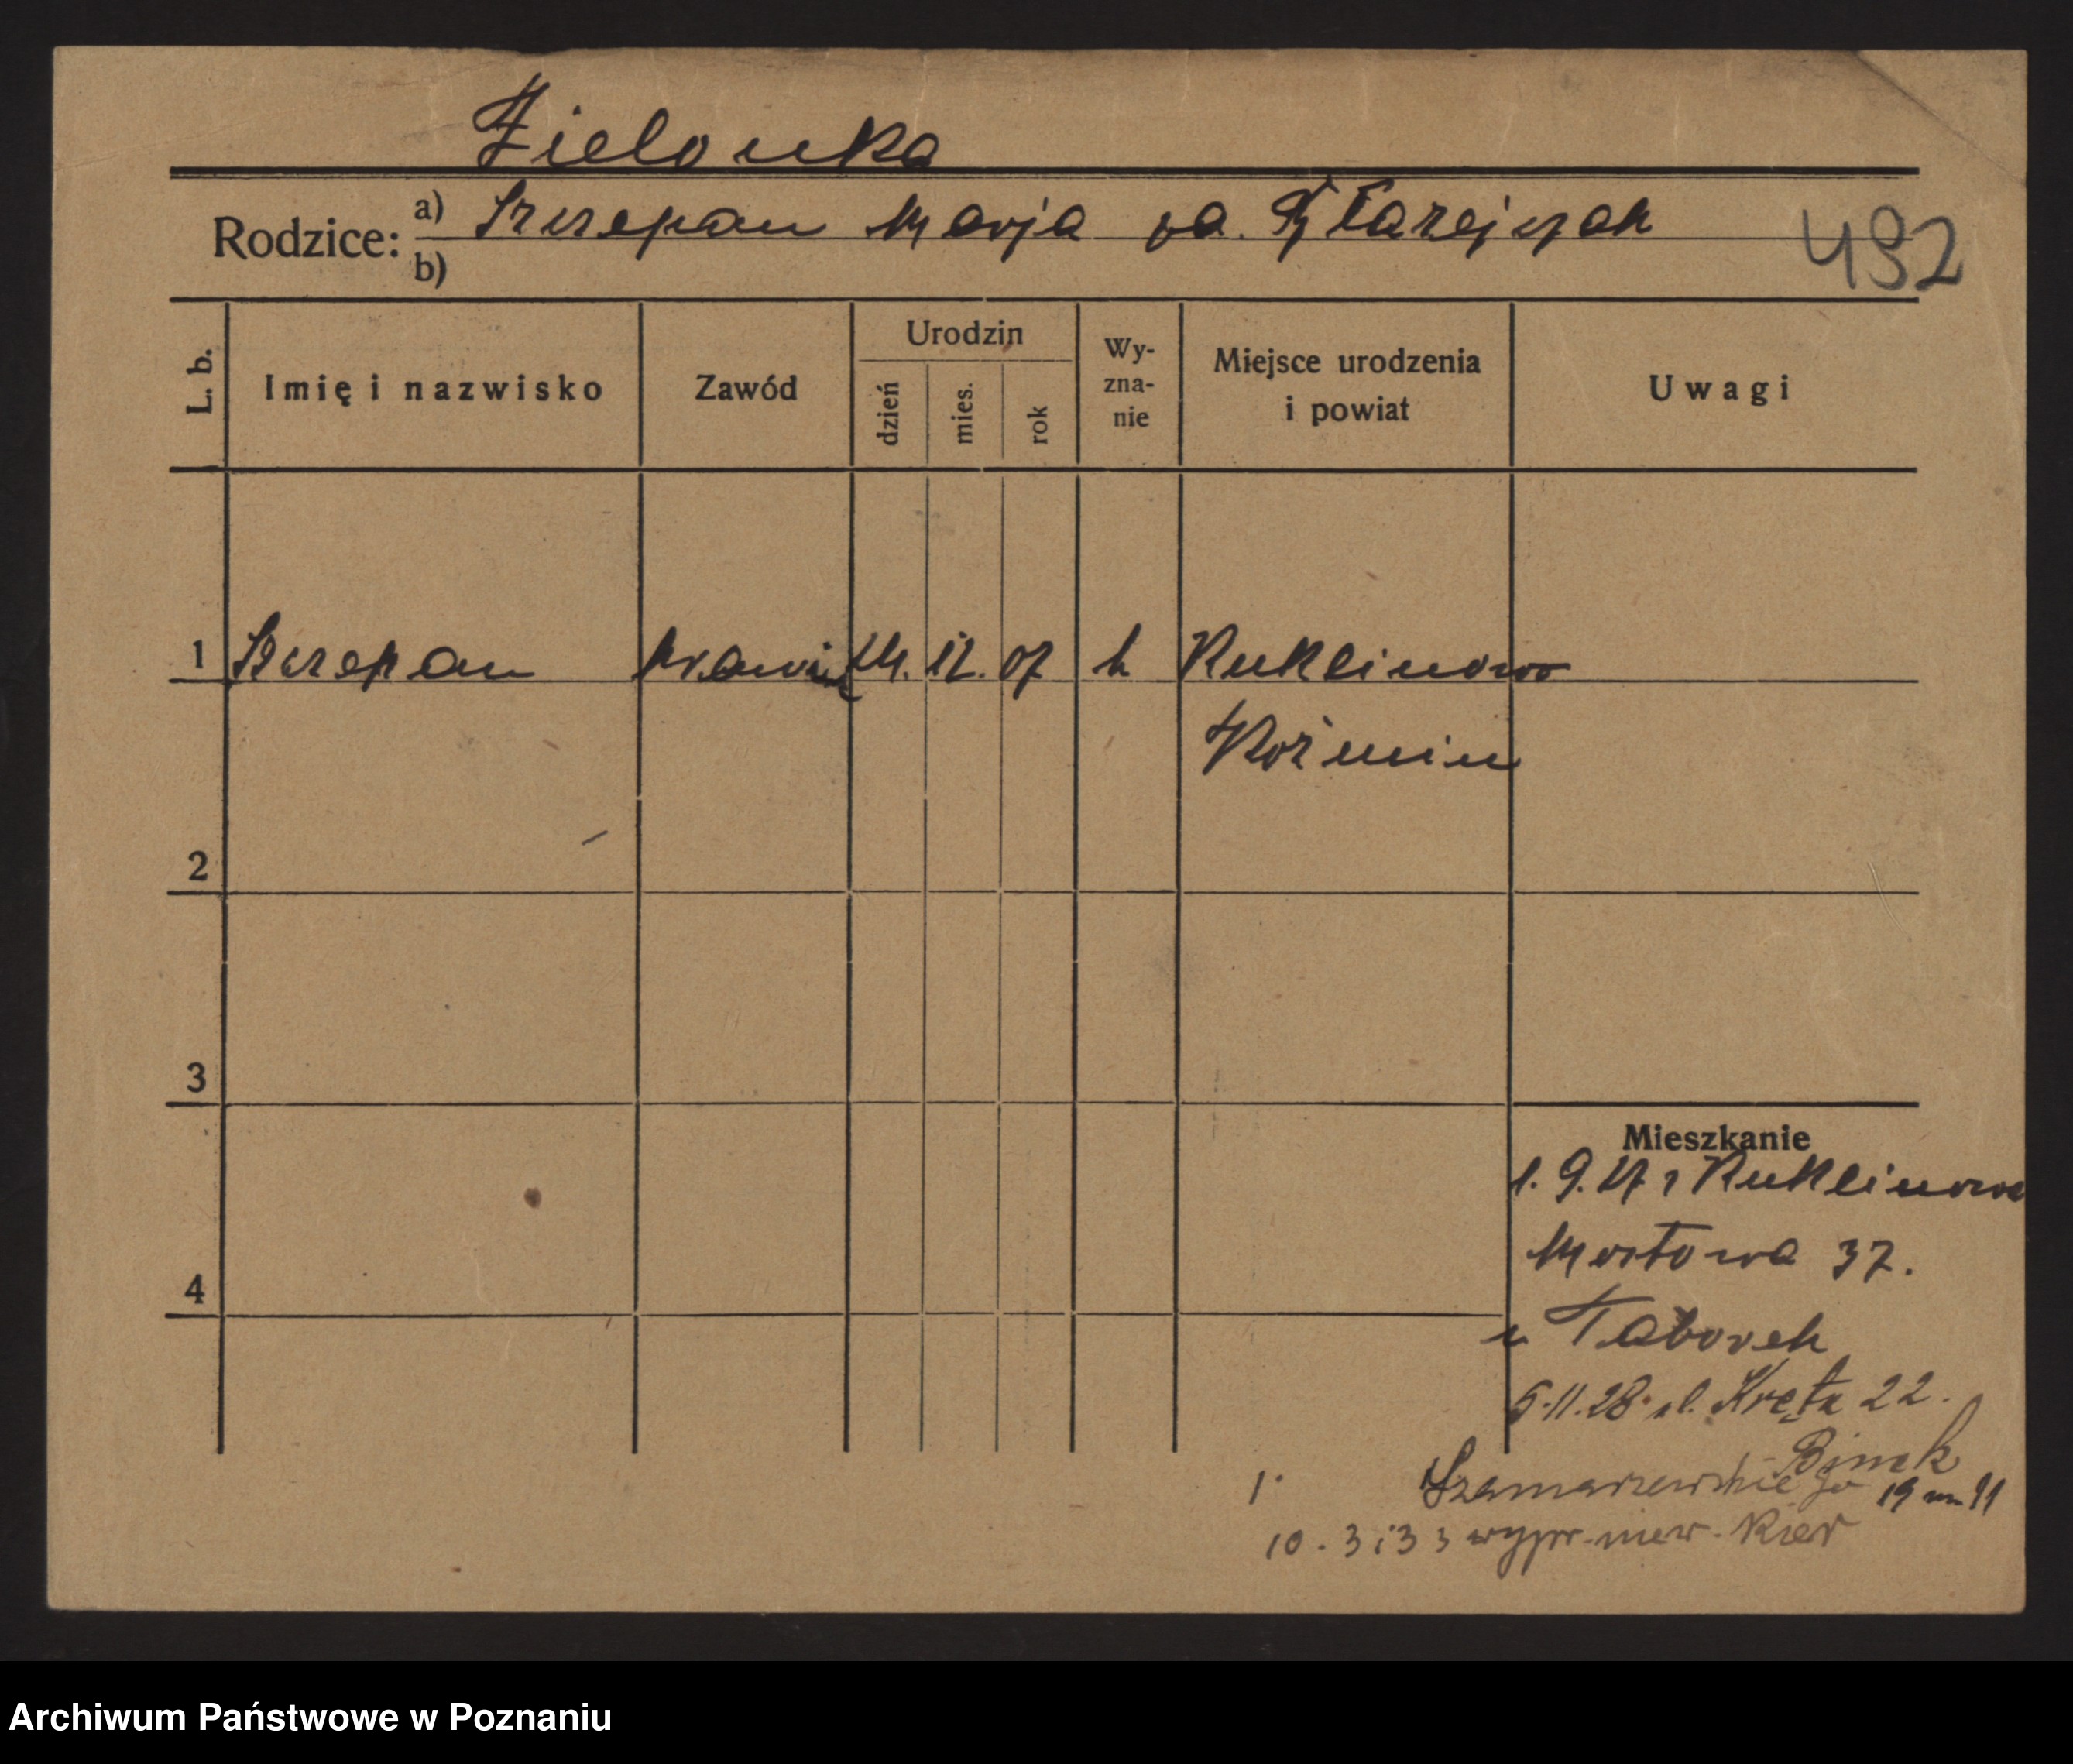 Zielonka
Rodzice: a) Szczepan Marja zd. Błażejczak
b)
492
L. b. Imię i nazwisko Zawód Urodzin dzień mies. rok Wy-zna-nie Miejsce urodzenia i powiat Uwagi
1 Szczepan krawiec 12. 07 k Kuklinowo
Koźmin
2
3
Mieszkanie
1. 9. 27 z Kuklinowa
Mostowa 37.
4
u Taborek
5.11.28 ul. Kręta 22.
Szamarzewskiego 19 m 11
10. 3 33 wypr. niew. kier
Archiwum Państwowe w Poznaniu